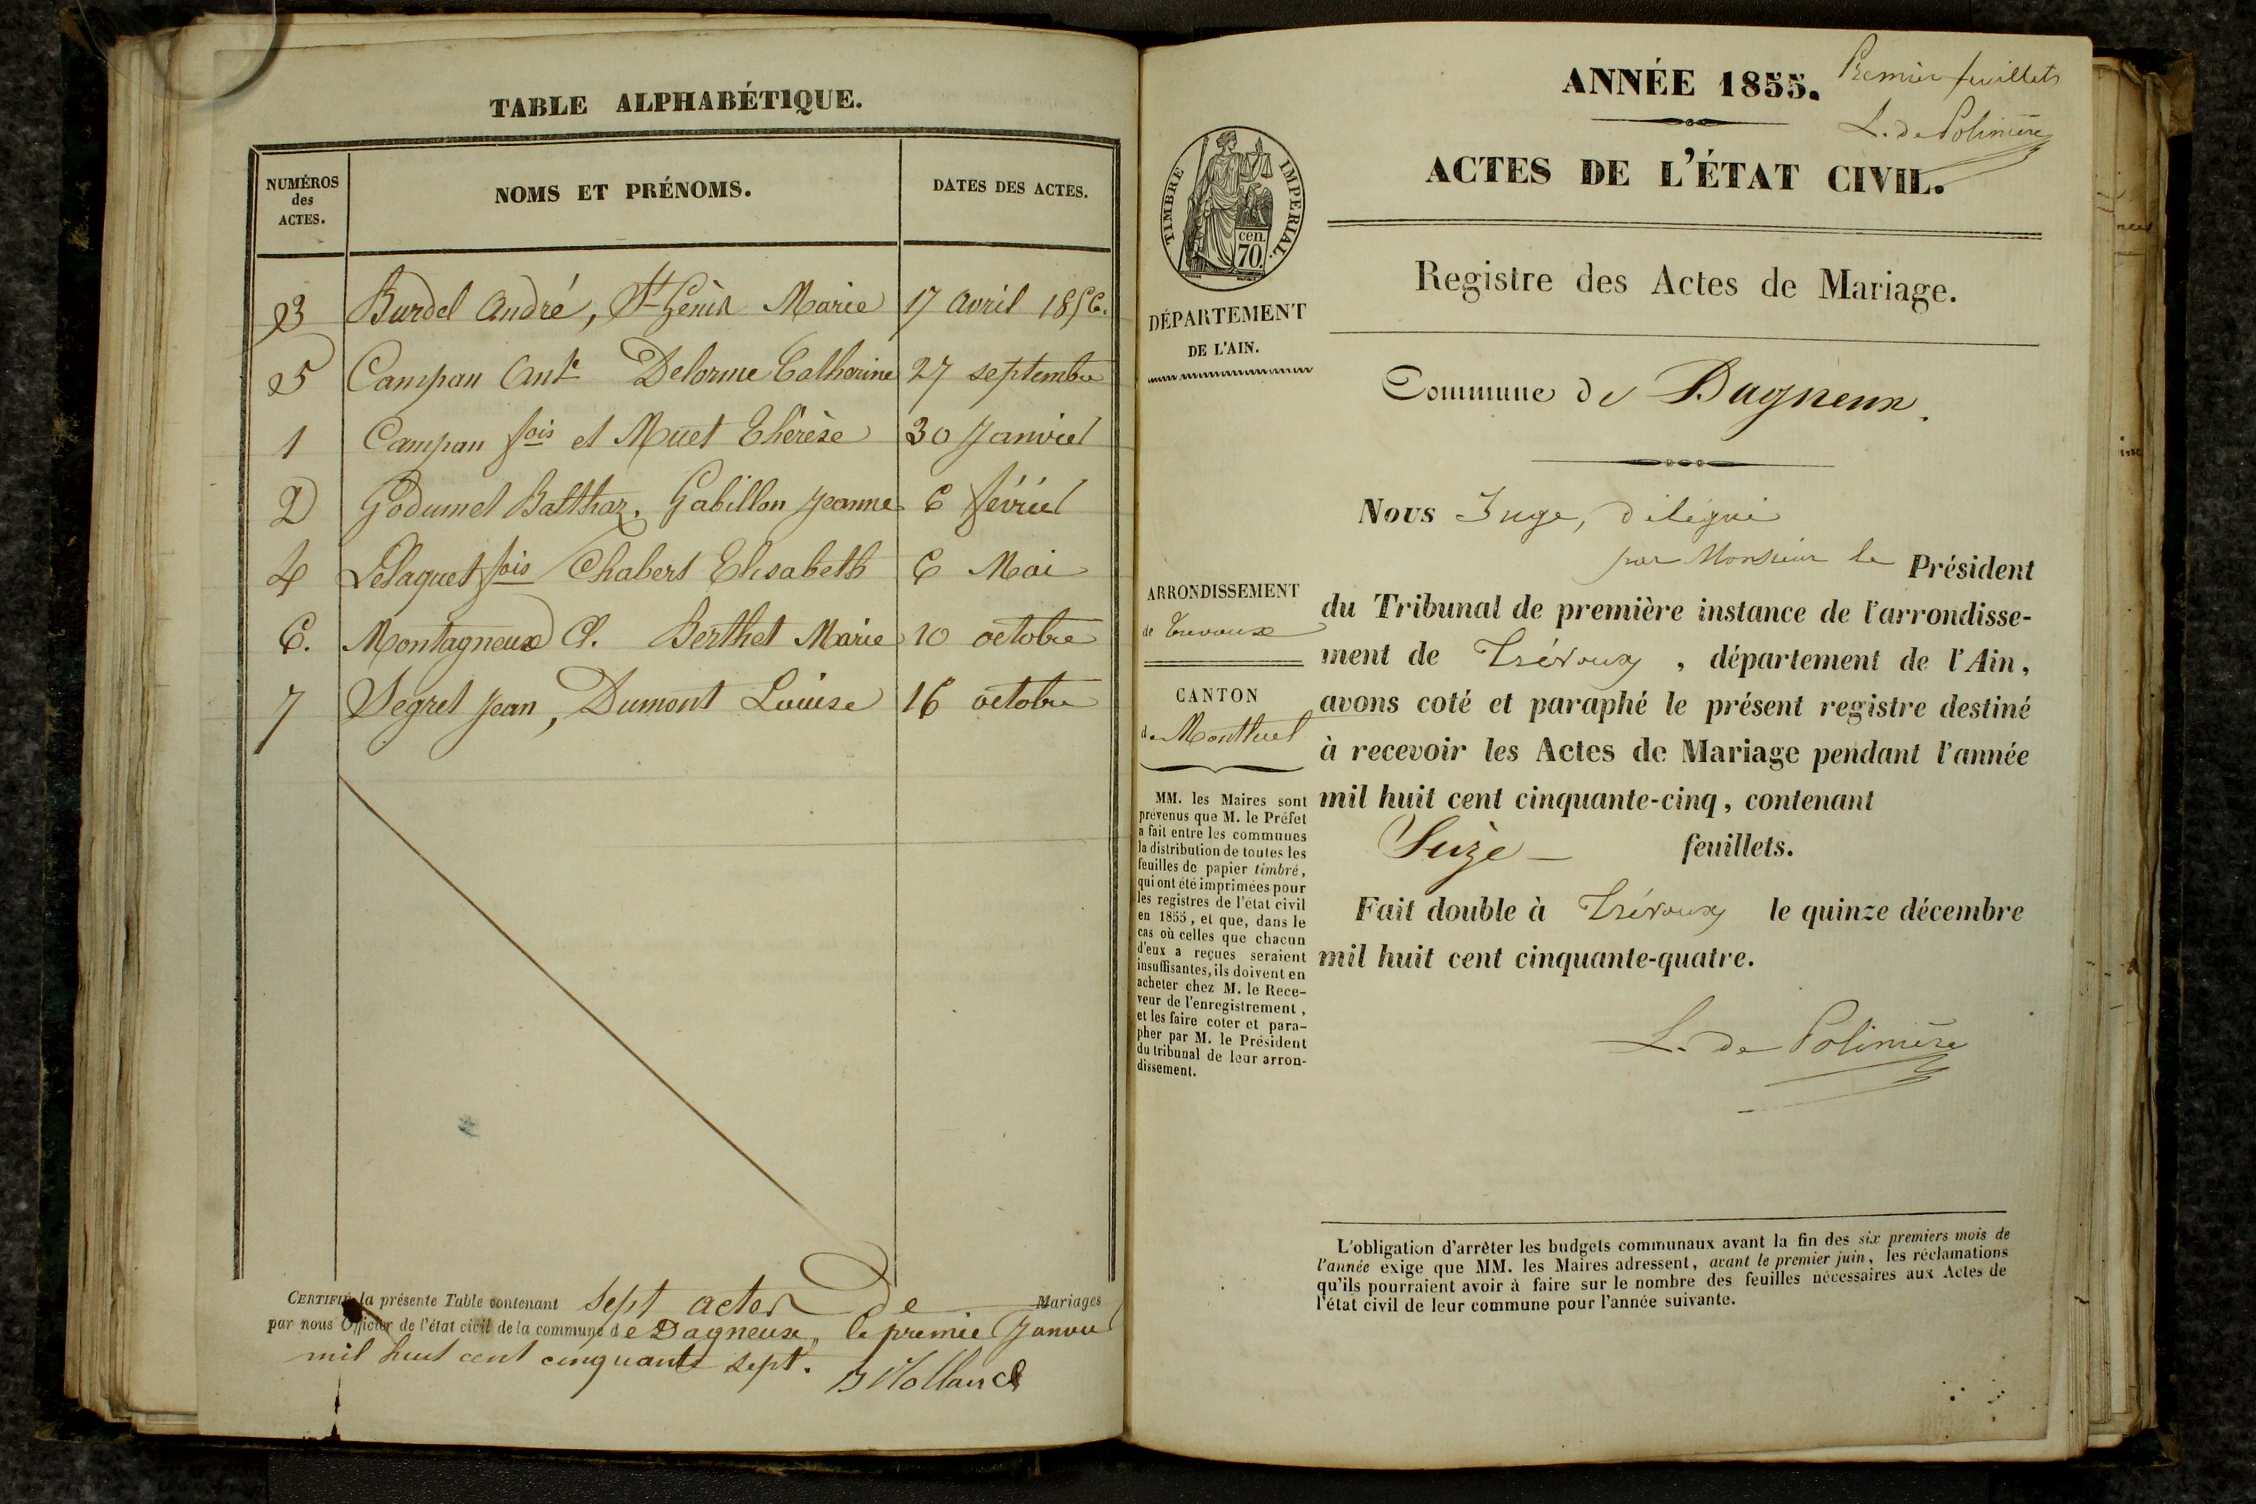 TABLE ALPHABÉTIQUE.
NUMÉROS des ACTES.
NOMS ET PRÉNOMS.
DATES DES ACTES.
3 Burdel André, St Génis Marie 17 avril 1856.
5 Campan Ante Delorme Catherine 27 septembre
1 Campan fois et Muet Thérèse 30 Janvier
2 Godumet Balthaz. Gabillon Jeanne 6 février
4 Lelaquet fois Chabert Elisabeth 6 Mai
6. Montagneux Cl. Berthet Marie 10 octobre
7 Segret Jean, Dumont Louise 16 octobre
CERTIFIÉ la présente Table contenant sept actes de Mariages
par nous Officier de l'état civil de la commune de Dagneux, le premier Janvier
mil huit cent cinquante sept.
ANNÉE 1855.
Premier feuillets
L. de Polinière
ACTES DE L'ÉTAT CIVIL.
TIMBRE IMPERIAL.
cen.
70.
Registre des Actes de Mariage.
DÉPARTEMENT
DE L'AIN.
Commune de Dagneux.
Nous Juge, délégué
par Monsieur le Président
ARRONDISSEMENT
de Trevoux
CANTON
de Montluel
du Tribunal de première instance de l'arrondisse-
ment de Trévoux, département de l'Ain,
avons coté et paraphé le présent registre destiné
à recevoir les Actes de Mariage pendant l'année
mil huit cent cinquante-cinq, contenant
Seize — feuillets.
Fait double à Trévoux le quinze décembre
mil huit cent cinquante-quatre.
L. de Polinière
MM. les Maires sont
prévenus que M. le Préfet
a fait entre les communes
la distribution de toutes les
feuilles de papier timbré,
qui ont été imprimées pour
les registres de l'état civil
en 1855, et que, dans le
cas où celles que chacun
d'eux a reçues seraient
insuffisantes, ils doivent en
acheter chez M. le Rece-
veur de l'enregistrement,
et les faire coter et para-
pher par M. le Président
du tribunal de leur arron-
dissement.
L'obligation d'arrêter les budgets communaux avant la fin des six premiers mois de
l'année exige que MM. les Maires adressent, avant le premier juin, les réclamations
qu'ils pourraient avoir à faire sur le nombre des feuilles nécessaires aux Actes de
l'état civil de leur commune pour l'année suivante.